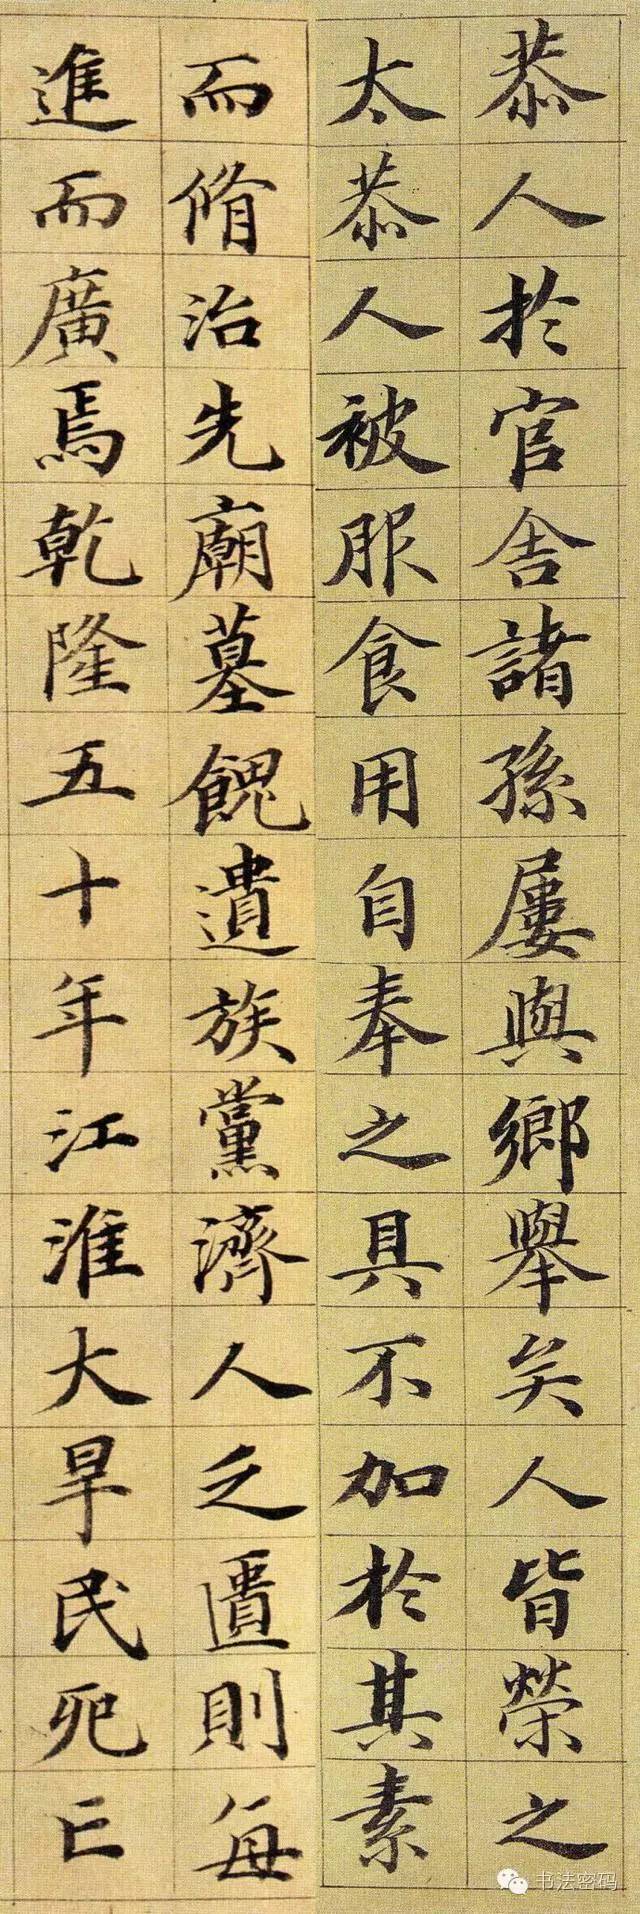 恭人於官舍諸孫屢與鄉舉矣人皆榮之
太恭人被服食用自奉之具不加於其素
而脩治先廟墓餽遺族黨濟人乏匱則每
進而廣焉乾隆五十年江淮大旱民死亡
书法密码